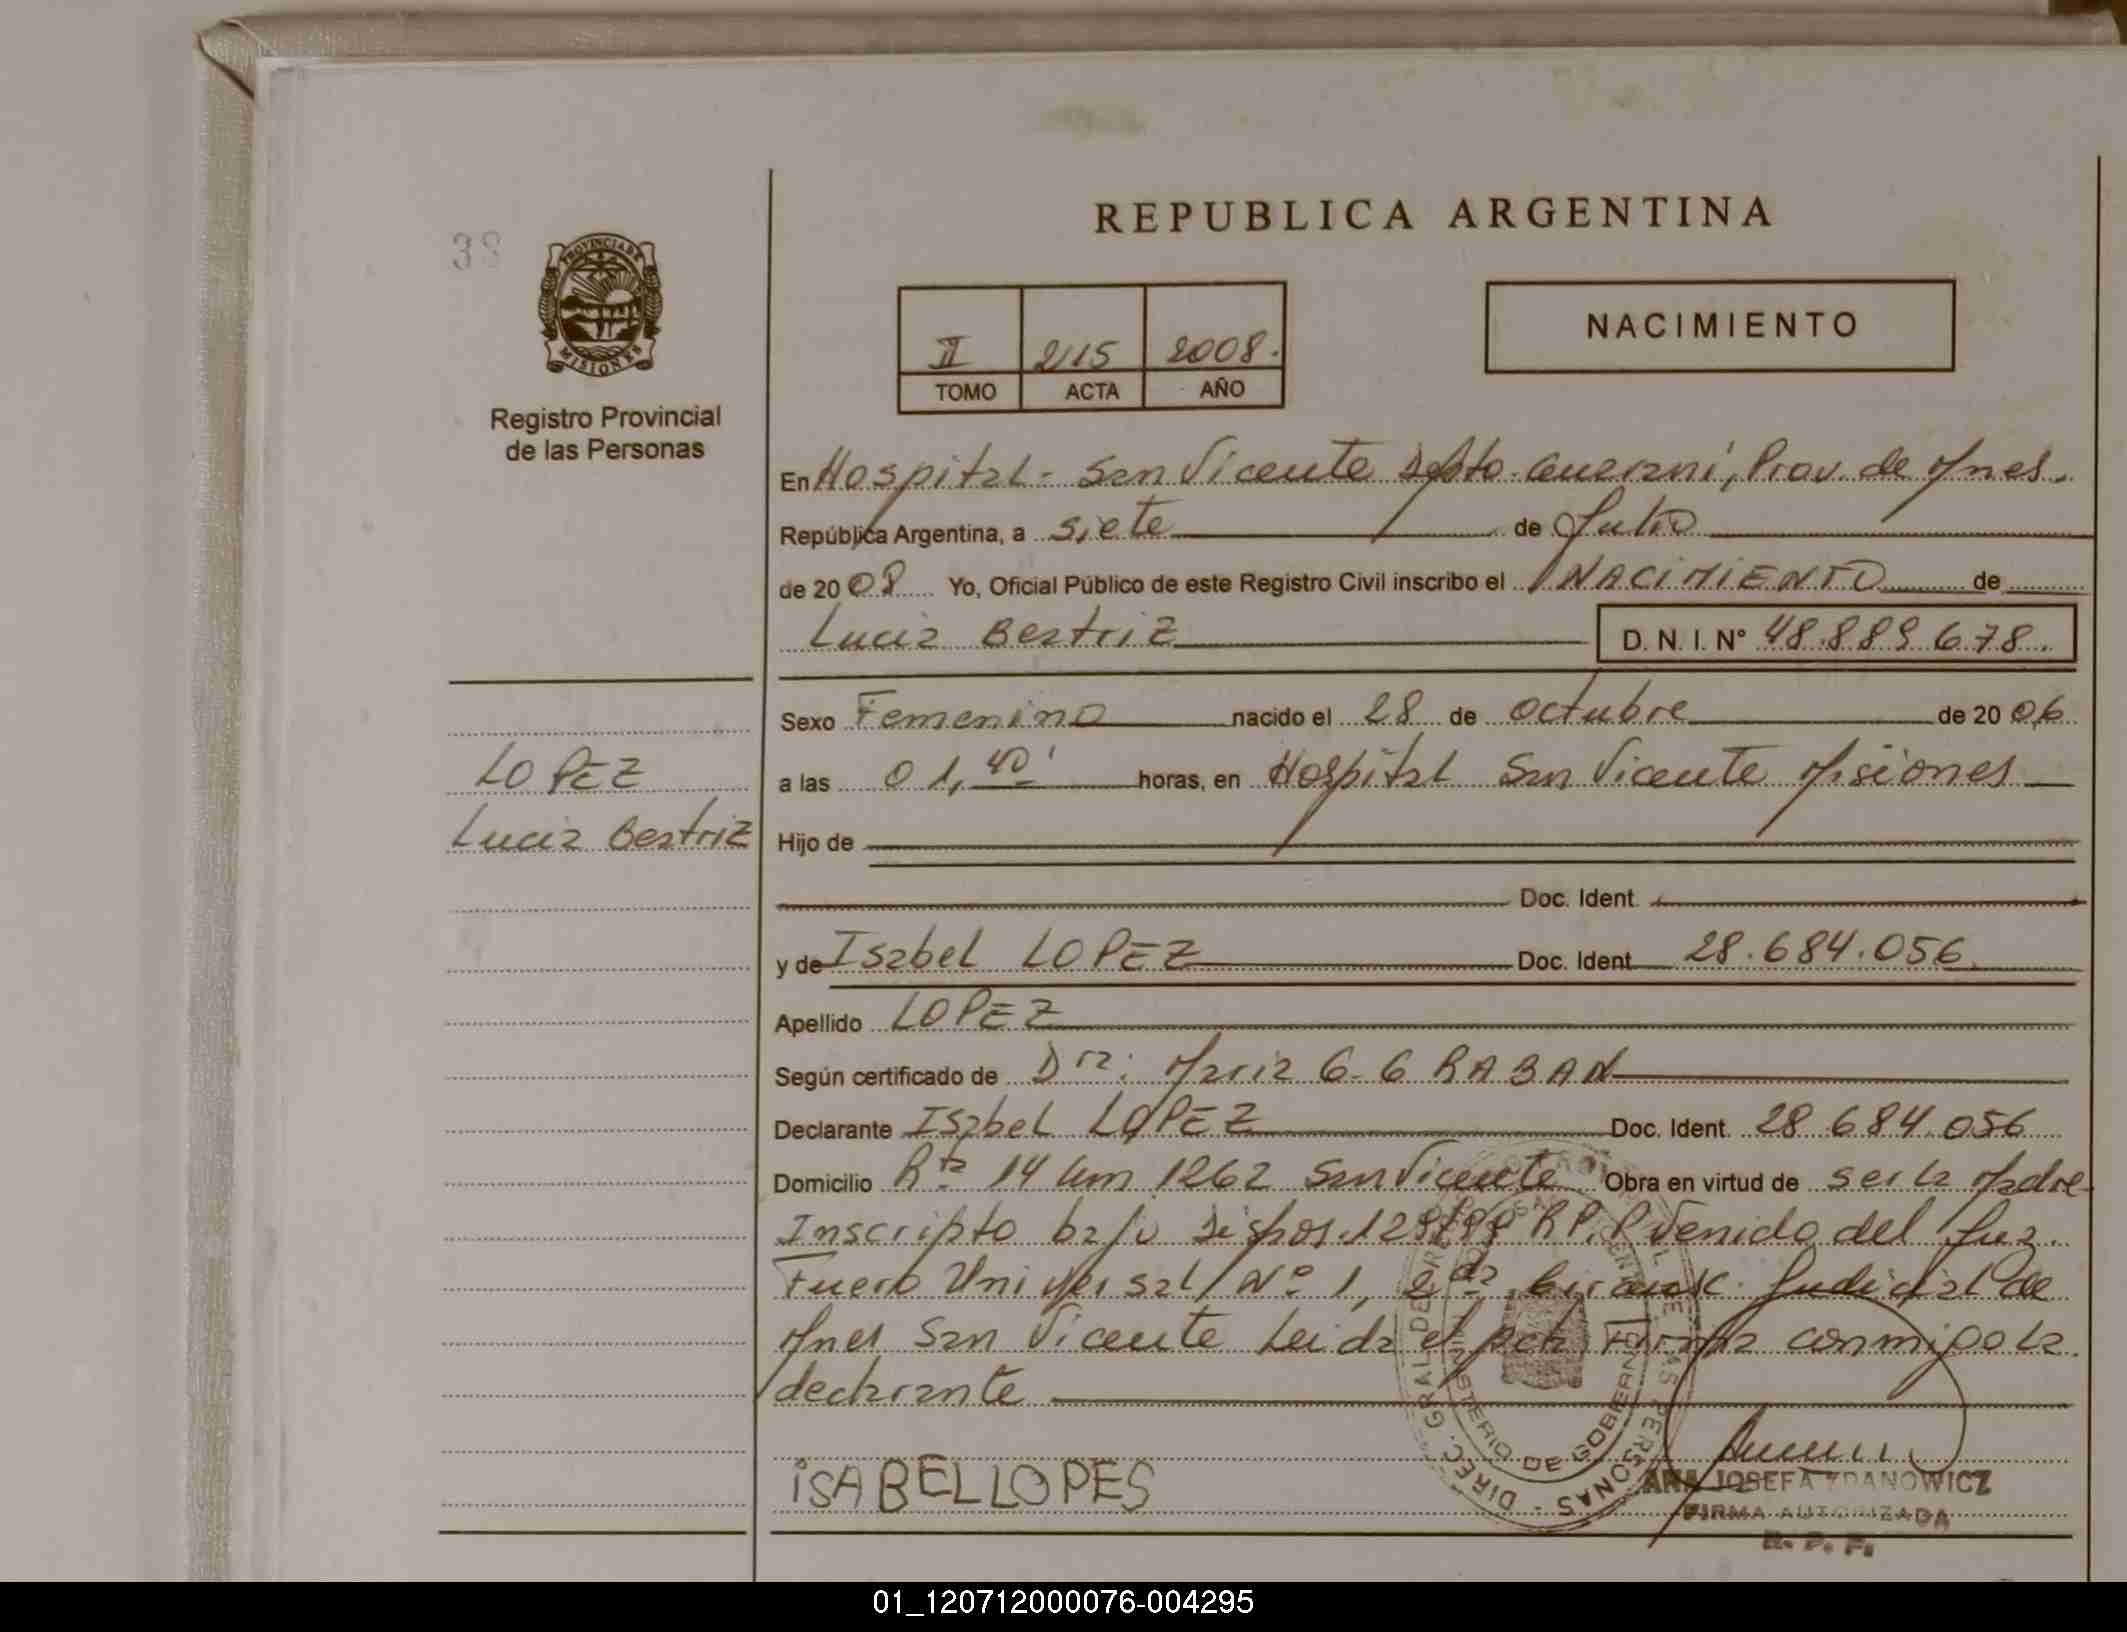 REPUBLICA ARGENTINA
38
PROVINCIA DE
MISIONES
Registro Provincial
de las Personas
II 215 2008.
TOMO ACTA AÑO
NACIMIENTO
En Hospital - San Vicente Depto. Guaraní, Prov. de Mnes.
República Argentina, a siete de Julio
de 2008 Yo, Oficial Público de este Registro Civil inscribo el NACIMIENTO de
Lucia Beatriz D. N. I. N° 48.889.678.
Sexo Femenino nacido el 28 de octubre de 2006
LOPEZ
Lucia Beatriz
a las 01,40' horas, en Hospital San Vicente Misiones
Hijo de
Doc. Ident.
y de Isabel LOPEZ Doc. Ident. 28.684.056
Apellido LOPEZ
Según certificado de Dra: Maria G. GRABAN
Declarante Isabel LOPEZ Doc. Ident. 28.684.056
Domicilio Rta 14 Km 1262 San Vicente Obra en virtud de ser la Madre
Inscripto bajo Dispos. R.P.P Venido del Juz.
Fuero Universal N° 1, 2da Circunsc. Judicial de
Mnes San Vicente Leida el acta Firma conmigo la
declarante
ISABEL LOPES
MINISTERIO DE GOBIERNO
ANA JOSEFA ZDANOWICZ
FIRMA AUTORIZADA
R. P. P.
01_120712000076-004295